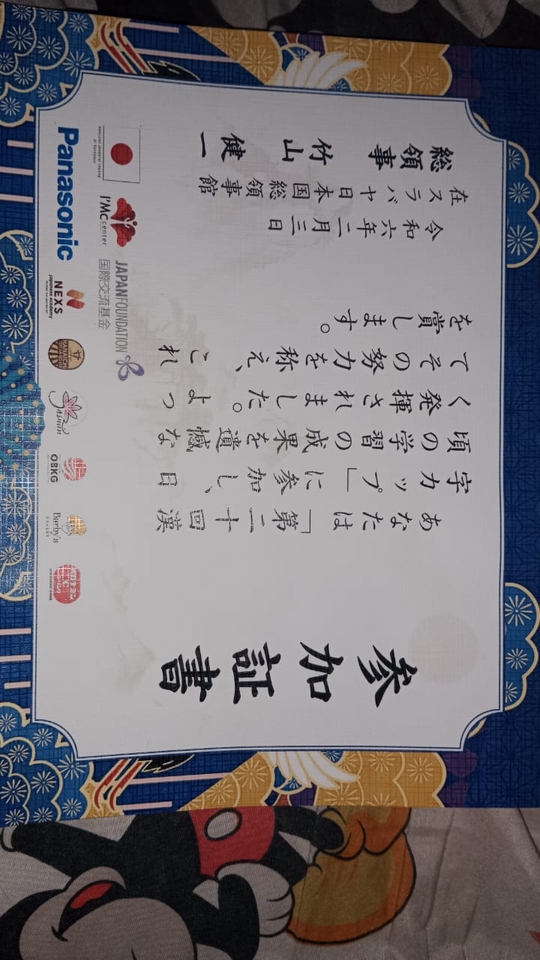 参加証書
あなたは「第二十回漢
字カップ」に参加し、日
頃の学習の成果を遺憾な
く発揮されました。よっ
てその努力を称え、これ
を賞します。
令和六年二月三日
在スラバヤ日本国総領事館
総領事 竹山 健一
I'MC center
JAPANFOUNDATION
国際交流基金
Panasonic
NEXS
OBKG